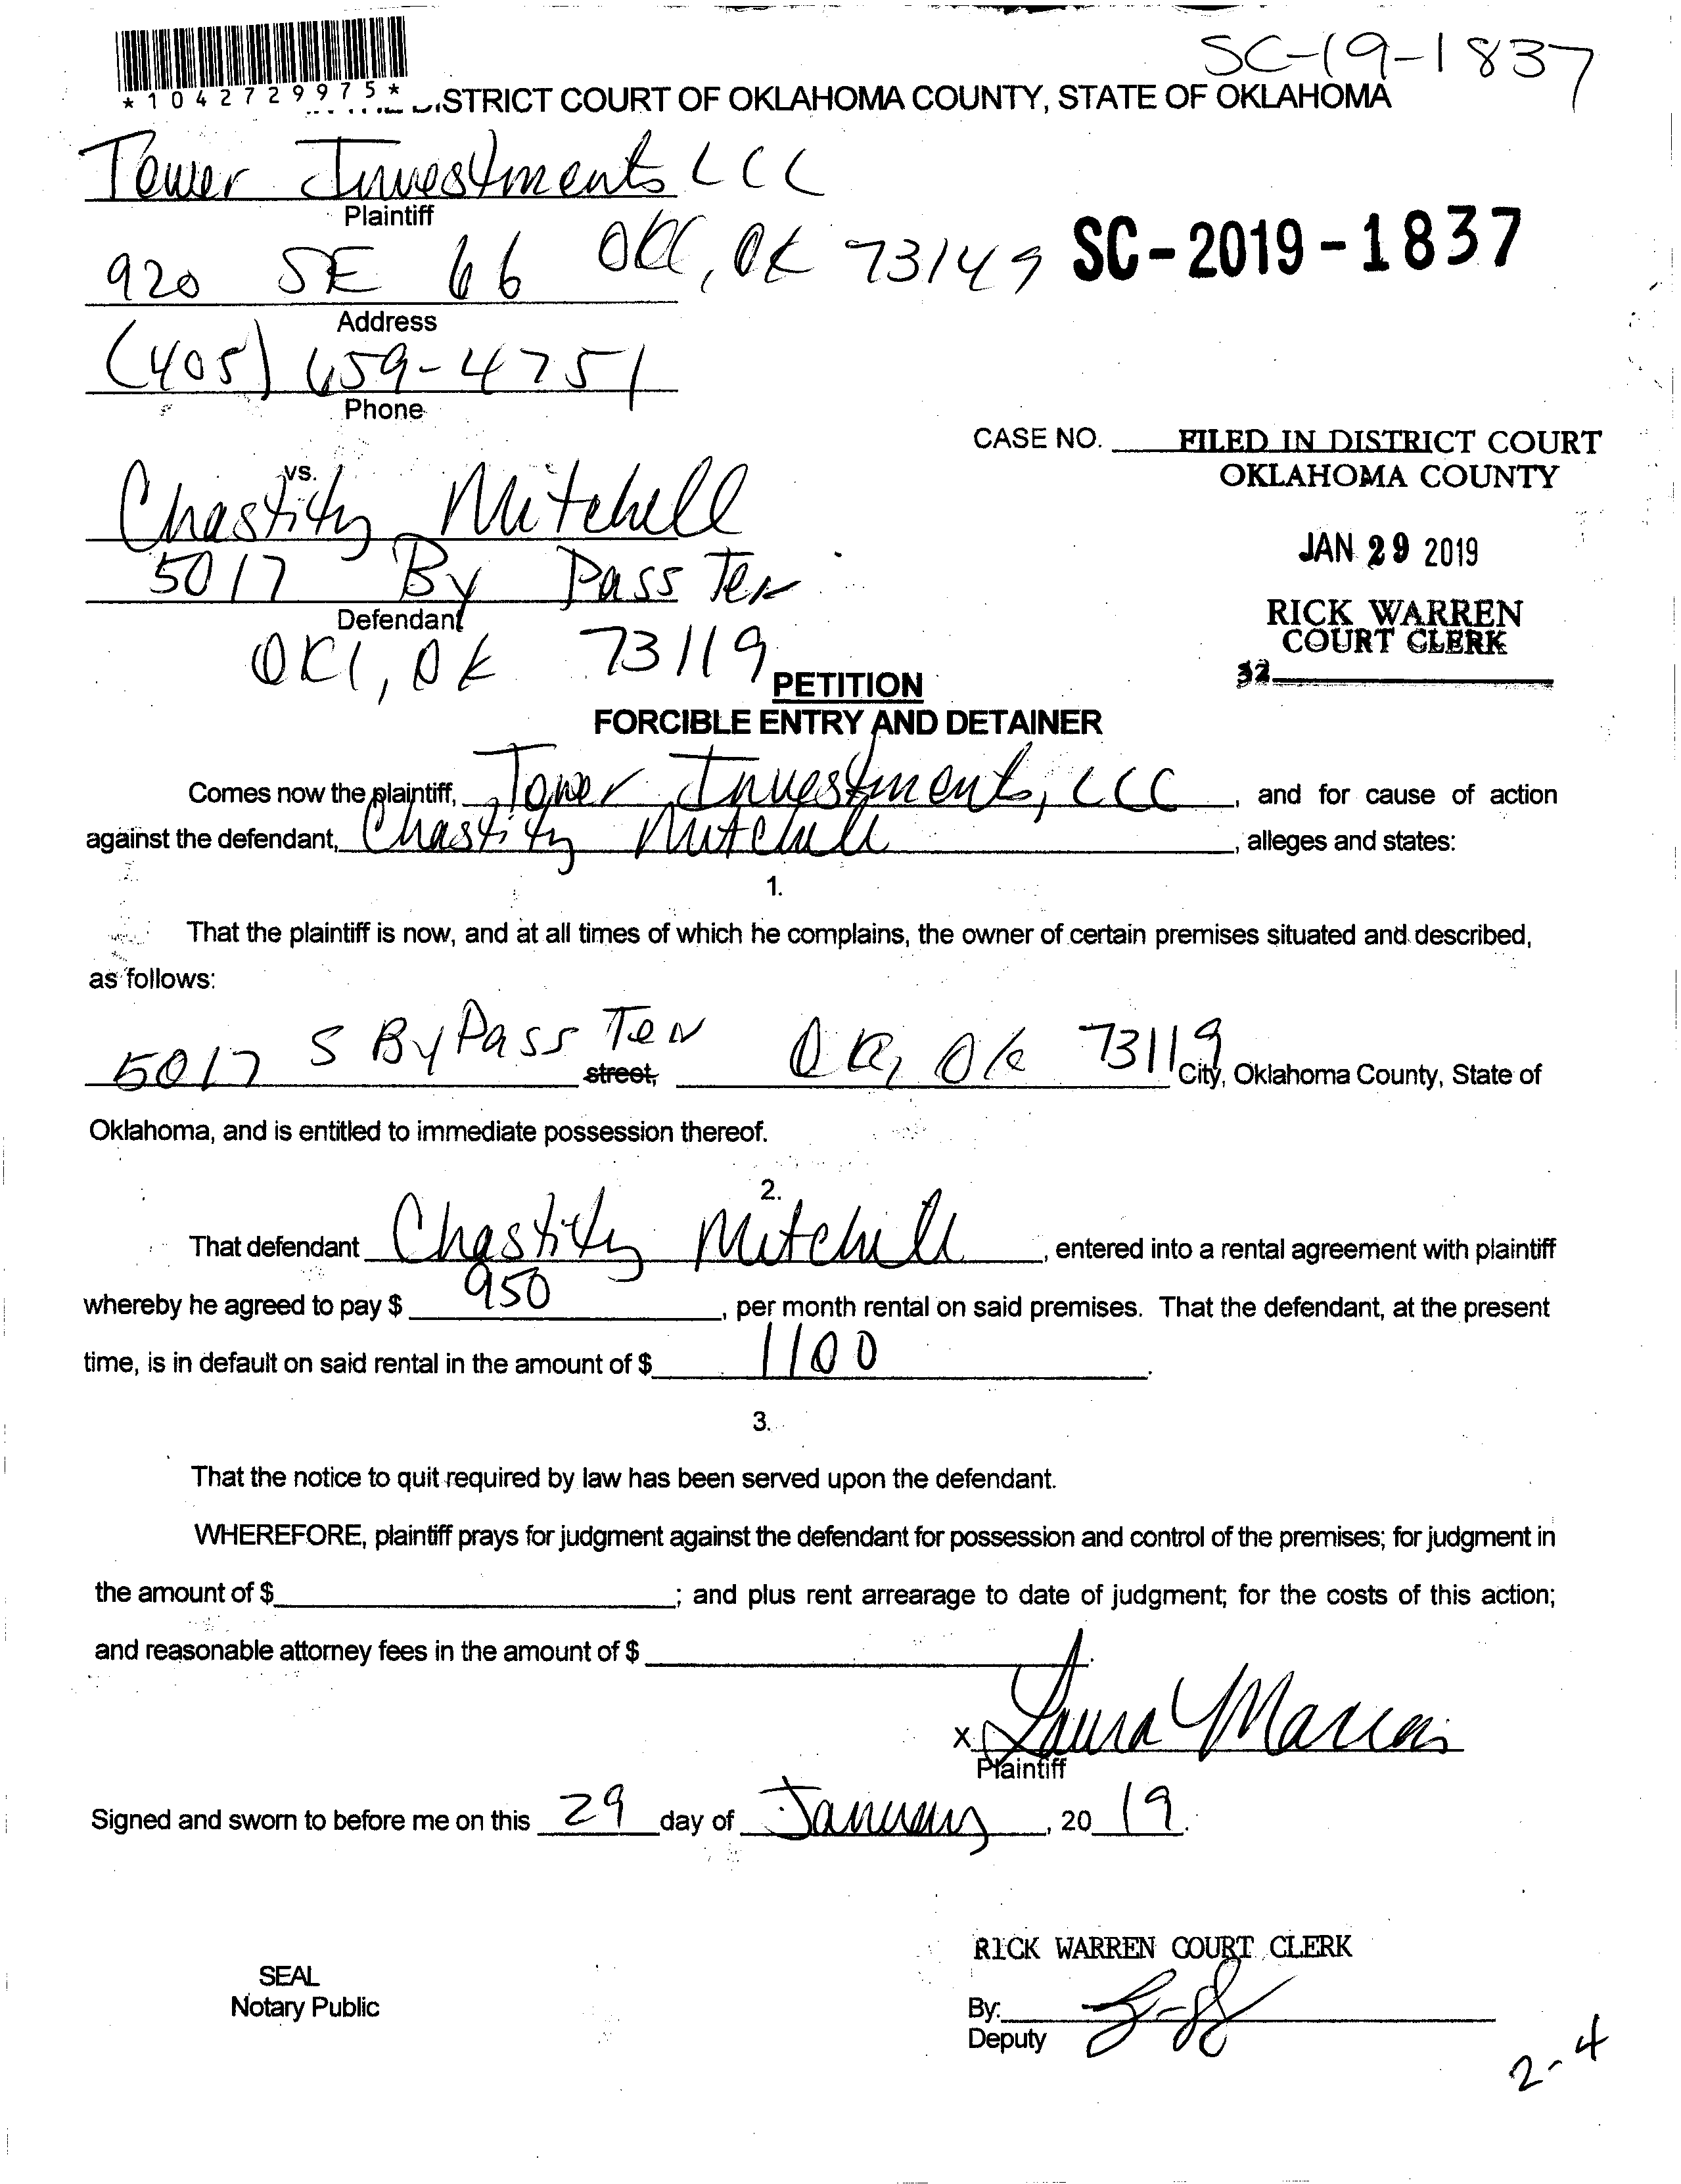 SC-19-1837
*1042729975*
DISTRICT COURT OF OKLAHOMA COUNTY, STATE OF OKLAHOMA
Tower Investments LLC
Plaintiff
920 SE 66 OKC, OK 73149
SC-2019-1837
Address
(405) 659-4751
Phone
CASE NO.
FILED IN DISTRICT COURT
OKLAHOMA COUNTY
vs.
Chastity Mitchell
JAN 29 2019
5017 By Pass Ter
Defendant
RICK WARREN
COURT CLERK
OKC, OK 73119
32
PETITION
FORCIBLE ENTRY AND DETAINER
Comes now the plaintiff, Tower Investments, LLC, and for cause of action
against the defendant, Chastity Mitchell, alleges and states:
1.
That the plaintiff is now, and at all times of which he complains, the owner of certain premises situated and described,
as follows:
5017 S ByPass Ter street, OKC, OK 73119 City, Oklahoma County, State of
Oklahoma, and is entitled to immediate possession thereof.
2.
That defendant Chastity Mitchell, entered into a rental agreement with plaintiff
whereby he agreed to pay $ 950, per month rental on said premises. That the defendant, at the present
time, is in default on said rental in the amount of $ 1100.
3.
That the notice to quit required by law has been served upon the defendant.
WHEREFORE, plaintiff prays for judgment against the defendant for possession and control of the premises; for judgment in
the amount of $ ; and plus rent arrearage to date of judgment; for the costs of this action;
and reasonable attorney fees in the amount of $ .
x Laura
Plaintiff
Signed and sworn to before me on this 29 day of January, 2019.
RICK WARREN COURT CLERK
SEAL
Notary Public
By:
Deputy
2-4